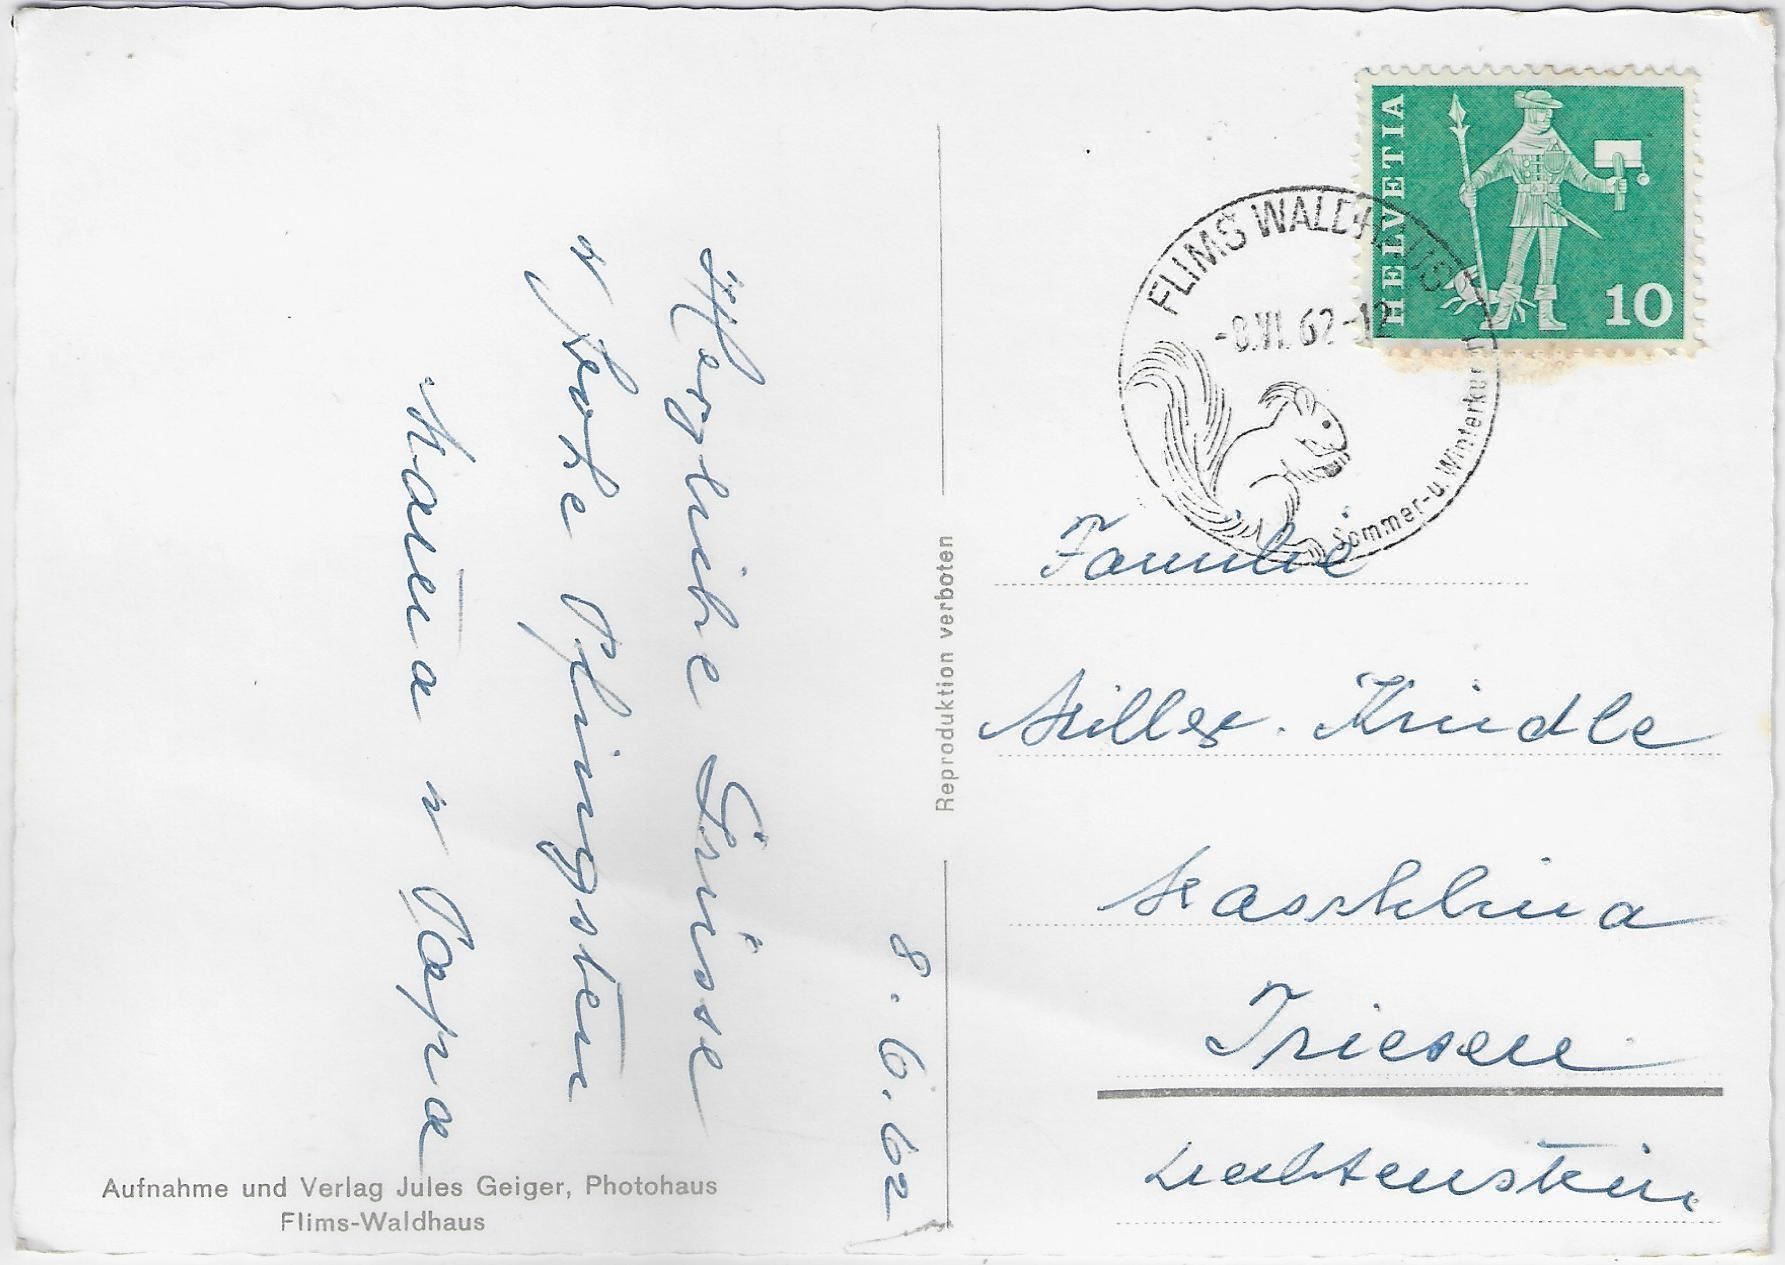 8.6.62
Herzliche Grüsse
u frohe Pfingsten
Mama u Papa
Aufnahme und Verlag Jules Geiger, Photohaus
Flims-Waldhaus
Reproduktion verboten
HELVETIA
10
FLIMS WALDHAUS
-8.VI.62-12
Sommer-u. Winterkurort
Familie
Kindle
Triesen
Liechtenstein